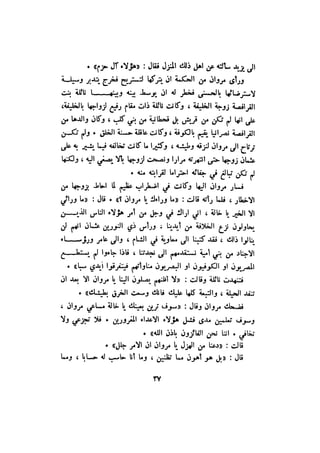 الى يزيد سألته عن اهل ذلك المنزل فقال : «هؤلاء آل حزم» •
ورأى مروان من الحكمة ان يتركها لتستريح فخرج يتدبر وسيلة
لاسترضائها بالحسنى فخطر له ان يوسط بينه وبينها نائلة بنت
القرافصة زوجة الخليفة ، وكانت نائلة ذات مقام رفيع لزواجها بالخليفة،
على انها لم تكن من قريش بل قحطانية من بني كلب ، وكان والدها من
القرافصة نصرانيا يقيم بالكوفة ، وكانت عاقلة حسنة الخلق • ولم تكن
ترتاح الى مروان لنزقه وطيشه ، وكثيرا ما كانت تخالفه فيما يشير به على
عثمان زوجها حتى انتهرته مرارا ونصحت لزوجها بألا يصغي اليه ، ولكنها
لم تكن تبالغ في جفائه احتراما لقرابته منه •
فسار مروان اليها وكانت في اضطراب عظيم لما احاط بزوجها من
الاخطار ، فلما رأته قالت : «ما وراءك يا مروان ؟» • قال : «ما ورائي
الا الخير يا خالة ، اني اراك في وجل من أمر هؤلاء الناس الذين
يحاولون نزع الخلافة من أيدينا • ورأس ذي النورين عثمان انهم لن
ينالوا ذلك ، فقد كتبنا الى معاوية في الشام ، والى عامر ورؤساء
الاجناد من بني أمية نستقدمهم الى نجدتنا ، فاذا جاءوا لم يستطع
المصريون او الكوفيون او البصريون مناوأتهم فيتفرقوا أيدي سبا» •
فتنهدت نائلة وقالت : «لا اظنهم يصلون الينا يا مروان الا بعد ان
تنفد الحيلة ، والتبعة كلها عليك فانك وسعت الخرق بطيشك» •
فضحك مروان وقال : «سوف ترين بعينك يا خالة مساعي مروان ،
وسوف تعلمين مدى فشل هؤلاء الاعداء المغرورين • فلا تجزعي ولا
تخافي • اننا نحن الفائزون باذن الله» •
قالت : «دعنا من الهزل يا مروان ان الامر جلل» •
قال : «بل هو أهون مما تظنين ، وما أنا حاسب له حسابا ، ومما
٣٧